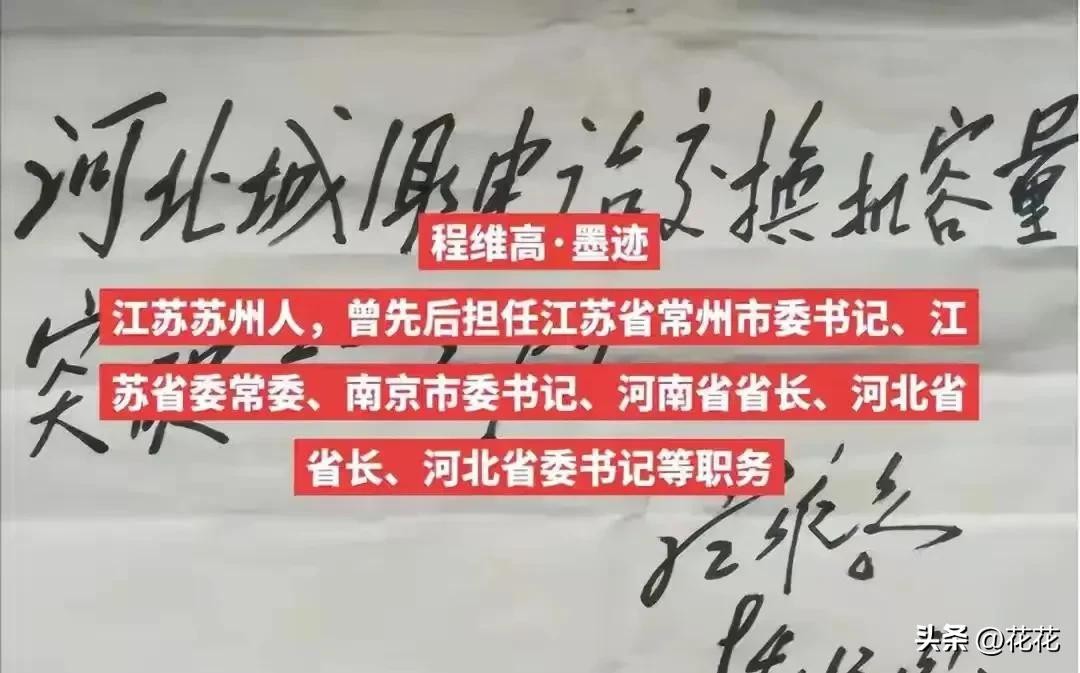 河北城乡电话交换机容量
程维高·墨迹
江苏苏州人，曾先后担任江苏省常州市委书记、江
苏省委常委、南京市委书记、河南省省长、河北省
省长、河北省委书记等职务
突破
程维高
头条 @花花